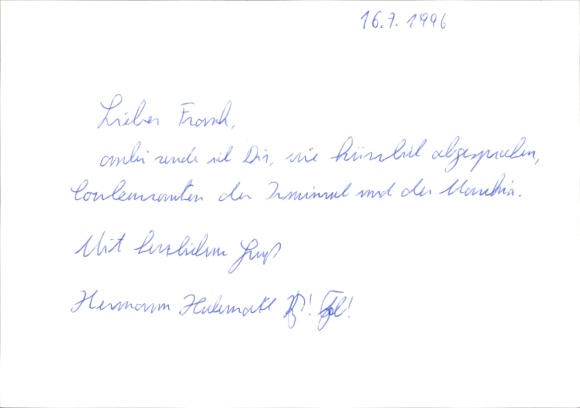 16.7.1996
Lieber Frank,
anbei sende ich Dir, wie kürzlich abgesprochen,
Conleuranten der Irminsul und der Marchia.
Mit herzlichem Gruß
Hermann